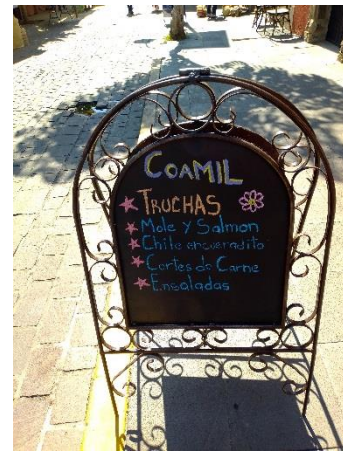 COAMIL
TRUCHAS
Mole y Salmon
Chile encueradito
Cortes de Carne
Ensaladas